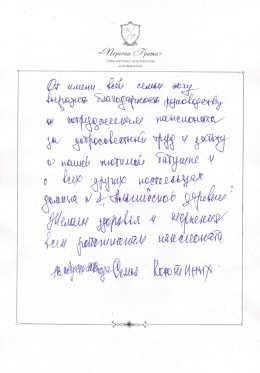 «Первая Грата»
Сеть частных пансионатов
для пожилых
От имени всей семьи хочу
выразить благодарность руководству
и сотрудникам пансионата
за добросовестный труд и заботу
о нашей любимой бабушке и
о всех других постояльцах
домика №1, "Английской деревне".
Желаем здоровья и терпения
всем работникам пансионата
Семья